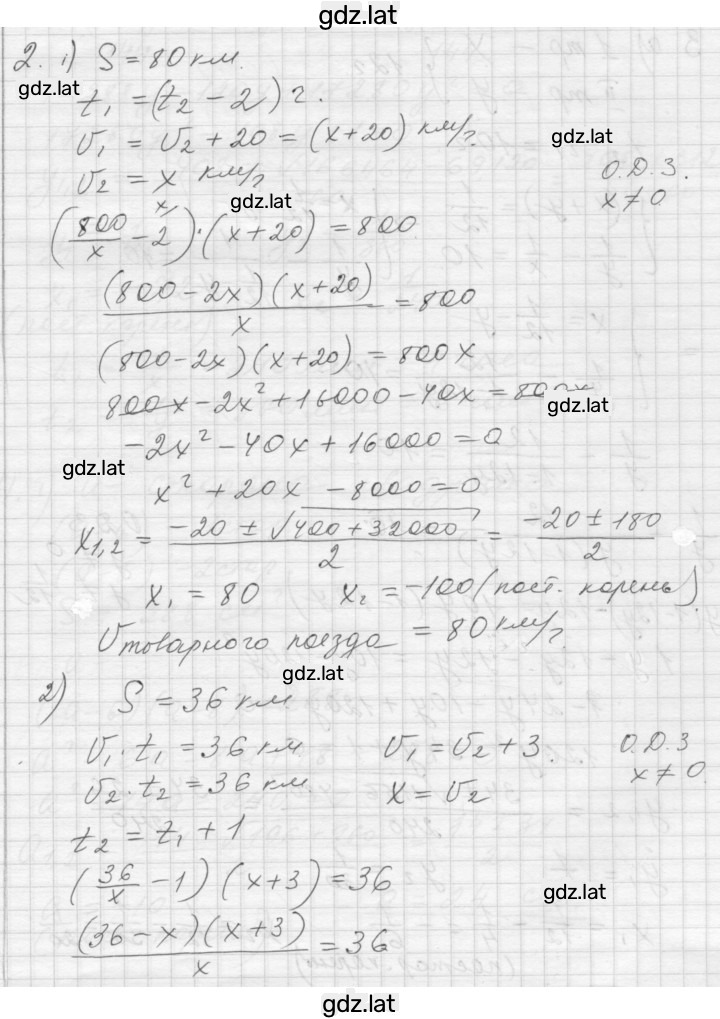 gdz.lat
2. 1) S = 80 км.
gdz.lat
t₁ = (t₂ − 2) ч.
v₁ = v₂ + 20 = (x+20) км/ч
gdz.lat
v₂ = x км/ч
О.Д.З.
x ≠ 0
gdz.lat
(800/x − 2^(x/)) · (x+20) = 800
(800 − 2x)(x+20)/x = 800
(800−2x)(x+20) = 800x
800x − 2x² + 16000 − 40x = 800x
gdz.lat
−2x² − 40x + 16000 = 0
gdz.lat
x² + 20x − 8000 = 0
x₁,₂ = (−20 ± √(400+32000))/2 = (−20 ± 180)/2
x₁ = 80 x₂ = −100 (пост. корень)
vтоварного поезда = 80 км/ч
gdz.lat
2) S = 36 км
v₁ · t₁ = 36 км v₁ = v₂ + 3. О.Д.З
v₂ · t₂ = 36 км x = v₂ x ≠ 0.
t₂ = t₁ + 1
(36/x − 1)(x+3) = 36
gdz.lat
(36 − x)(x+3)/x = 36
gdz.lat